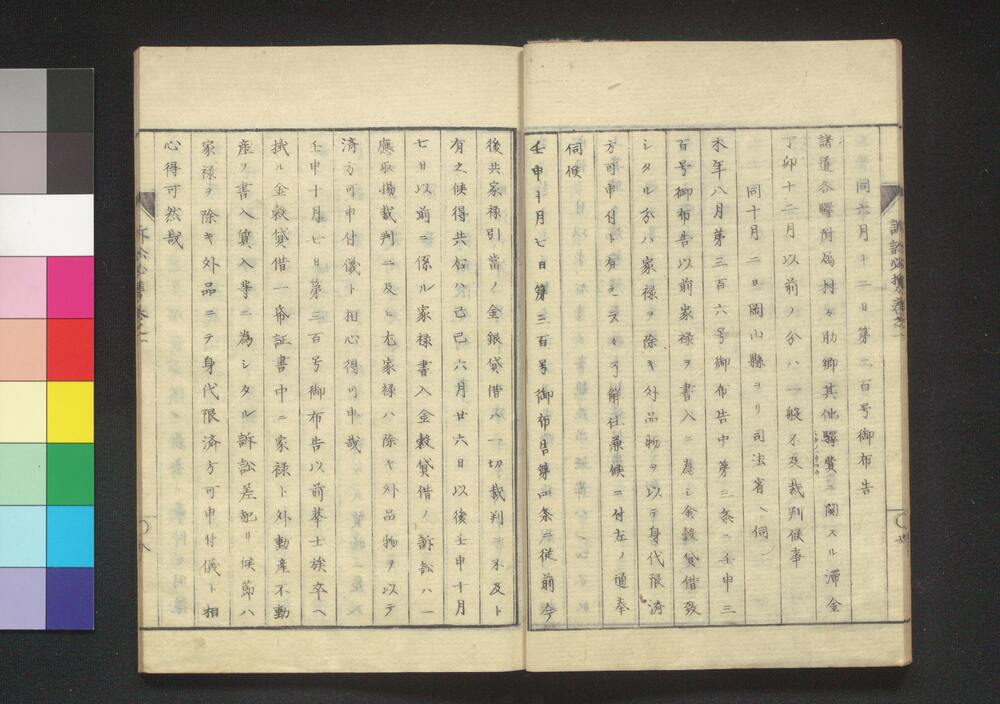 同六月十二日第二百号御布告
諸道各驛附属村々助郷其他驛費ニ関スル滞金
丁卯十二月以前ノ分ハ一般不及裁判候事
同十月二日岡山縣ヨリ司法省ヘ伺
本年八月第三百六号御布告中第三条ニ壬申三
百号御布告以前家禄ヲ書入ニ為シ金穀貸借致
シタル分ハ家禄ヲ除キ外品物ヲ以テ身代限済
方可申付ト有之
解仕兼候ニ付左ノ通奉
伺候
壬申十月七日第三百号御布告第四条ニ従前今
後共家禄引當ノ金銀貸借ハ一切裁判ニ不及ト
有之候得共右ハ己巳六月廿六日以後壬申十月
七日以前ニ係ル家禄書入金穀貸借ノ訴訟ハ一
應取揚裁判ニ及ヒ尤家禄ハ除キ外品物ヲ以テ
済方可申付儀ト相心得可申哉
壬申十月七日第三百号御布告以前華士族卒ヘ
拭ル金穀貸借一帋証書中ニ家禄ト外動産不動
産ノ書入質入等ニ為シタル訴訟差起リ候節ハ
家禄ヲ除キ外品ニテ身代限済方可申付儀ト相
心得可然哉